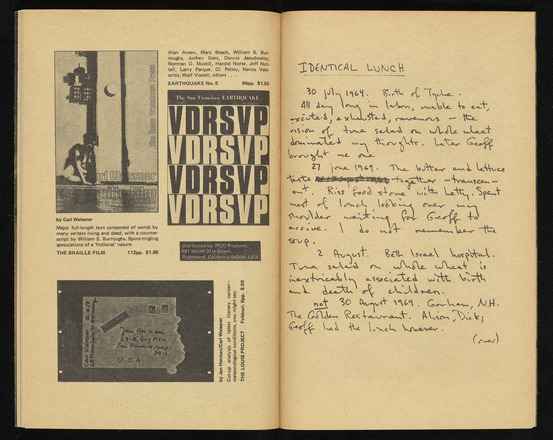 Alan Ansen, Mary Beach, William S. Bur-
roughs, Jochen Gerz, Dennis Jasudowicz,
Norman O. Mustill, Harold Norse, Jeff Nut-
tall, Larry Parque, Cl. Pelieu, Nanos Vala-
oritis, Wolf Vostell, others . . . .
EARTHQUAKE No. 5 96pp. $1.50
The San Francisco EARTHQUAKE
VDRSVP
VDRSVP
VDRSVP
VDRSVP
distributed by IPCO Products,
Richmond, California U.S.A.
by Carl Weissner
Major full-length text composed of words by
many writers living and dead, with a counter-
script by William S. Burroughs. Spine-tingling
speculations of a 'fictional' nature.
THE BRAILLE FILM 112pp. $1.95
U.S.A.
by Jan Herman/Carl Weissner
Cut-up analysis of latest literary career—
meteorological conditions, you might say.
THE LOUIS PROJECT Foldout, 8pp. $.50
IDENTICAL LUNCH
30 July 1964. Birth of Tyche.
All day long in labor, unable to eat,
excited, exhausted, ravenous – the
vision of tuna salad on whole wheat
dominated my thoughts. Later Geoff
brought me one.
27 June 1969. The butter and lettuce
taste together – transcen-
ent. Riss food store with Letty. Spent
most of lunch looking over my
shoulder waiting for Geoff to
arrive. I do not remember the
soup.
2 August. Beth Israel hospital.
Tuna salad on whole wheat is
inextricably associated with birth
and death of children.
not 30 August 1969. Gorham, N.H.
The Golden Restaurant. Alison, Dick;
Geoff had the lunch however.
(over)